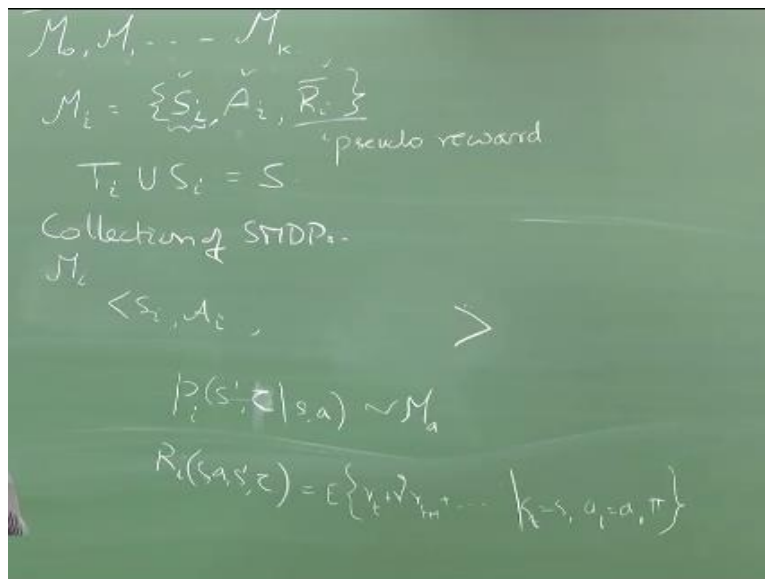 M₀, M₁ - - - - M_k
M_i = {S_i, A_i, R̄_i}
pseudo reward
T_i ∪ S_i = S
Collection of SMDPs.
M_i
<S_i, A_i, >
P_i(s', τ | s, a) ~ M_a
R_i(s, a, s', τ) = E{r_t + γ r_{t+1} + .... | s_t = s, a_t = a, π}